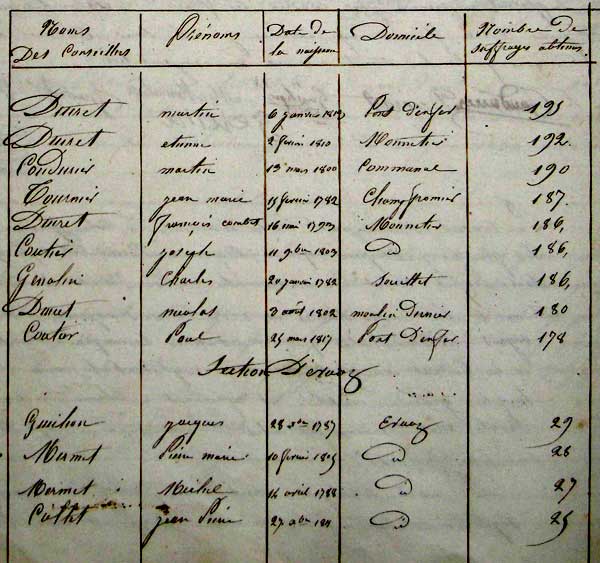 Noms Des Conseillers Prénoms Date de la naissance Domicile Nombre de suffrages obtenus
Ducret martin 6 janvier Pont d'enfer 195
Ducret etienne 2 fevrier 1810 Monnetier 192.
Coudurier martin 13 mars 1800 Communal 190
Tournier jean marie 15 fevrier 1782 Champfromier 187.
Ducret françois combet 16 mai 1793 Monnetier 186,
Coutier joseph 11 9bre 1803 id 186,
Genolin Charles 20 janvier 1782 186,
Ducret nicolas 3 août 1802 moulin dernier 180
Coutier Paul 25 mars 1817 Pont d'enfer 178
Section D'evuaz
jacques 28 1787 Evuaz 29
Mermet Pierre marie 10 fevrier 1805 id 28
Mermet Michel 14 avril 1788 id 27
jean Pierre 27 id 25